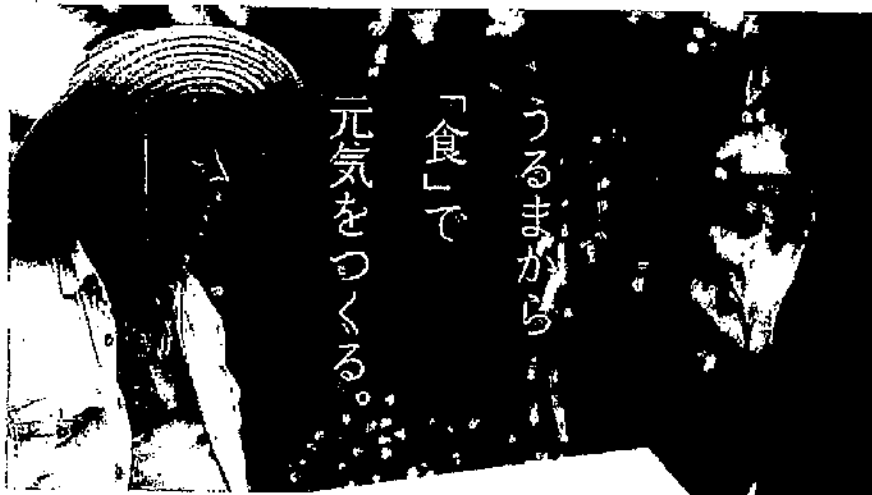 うるまから
「食」で
元気をつくる。